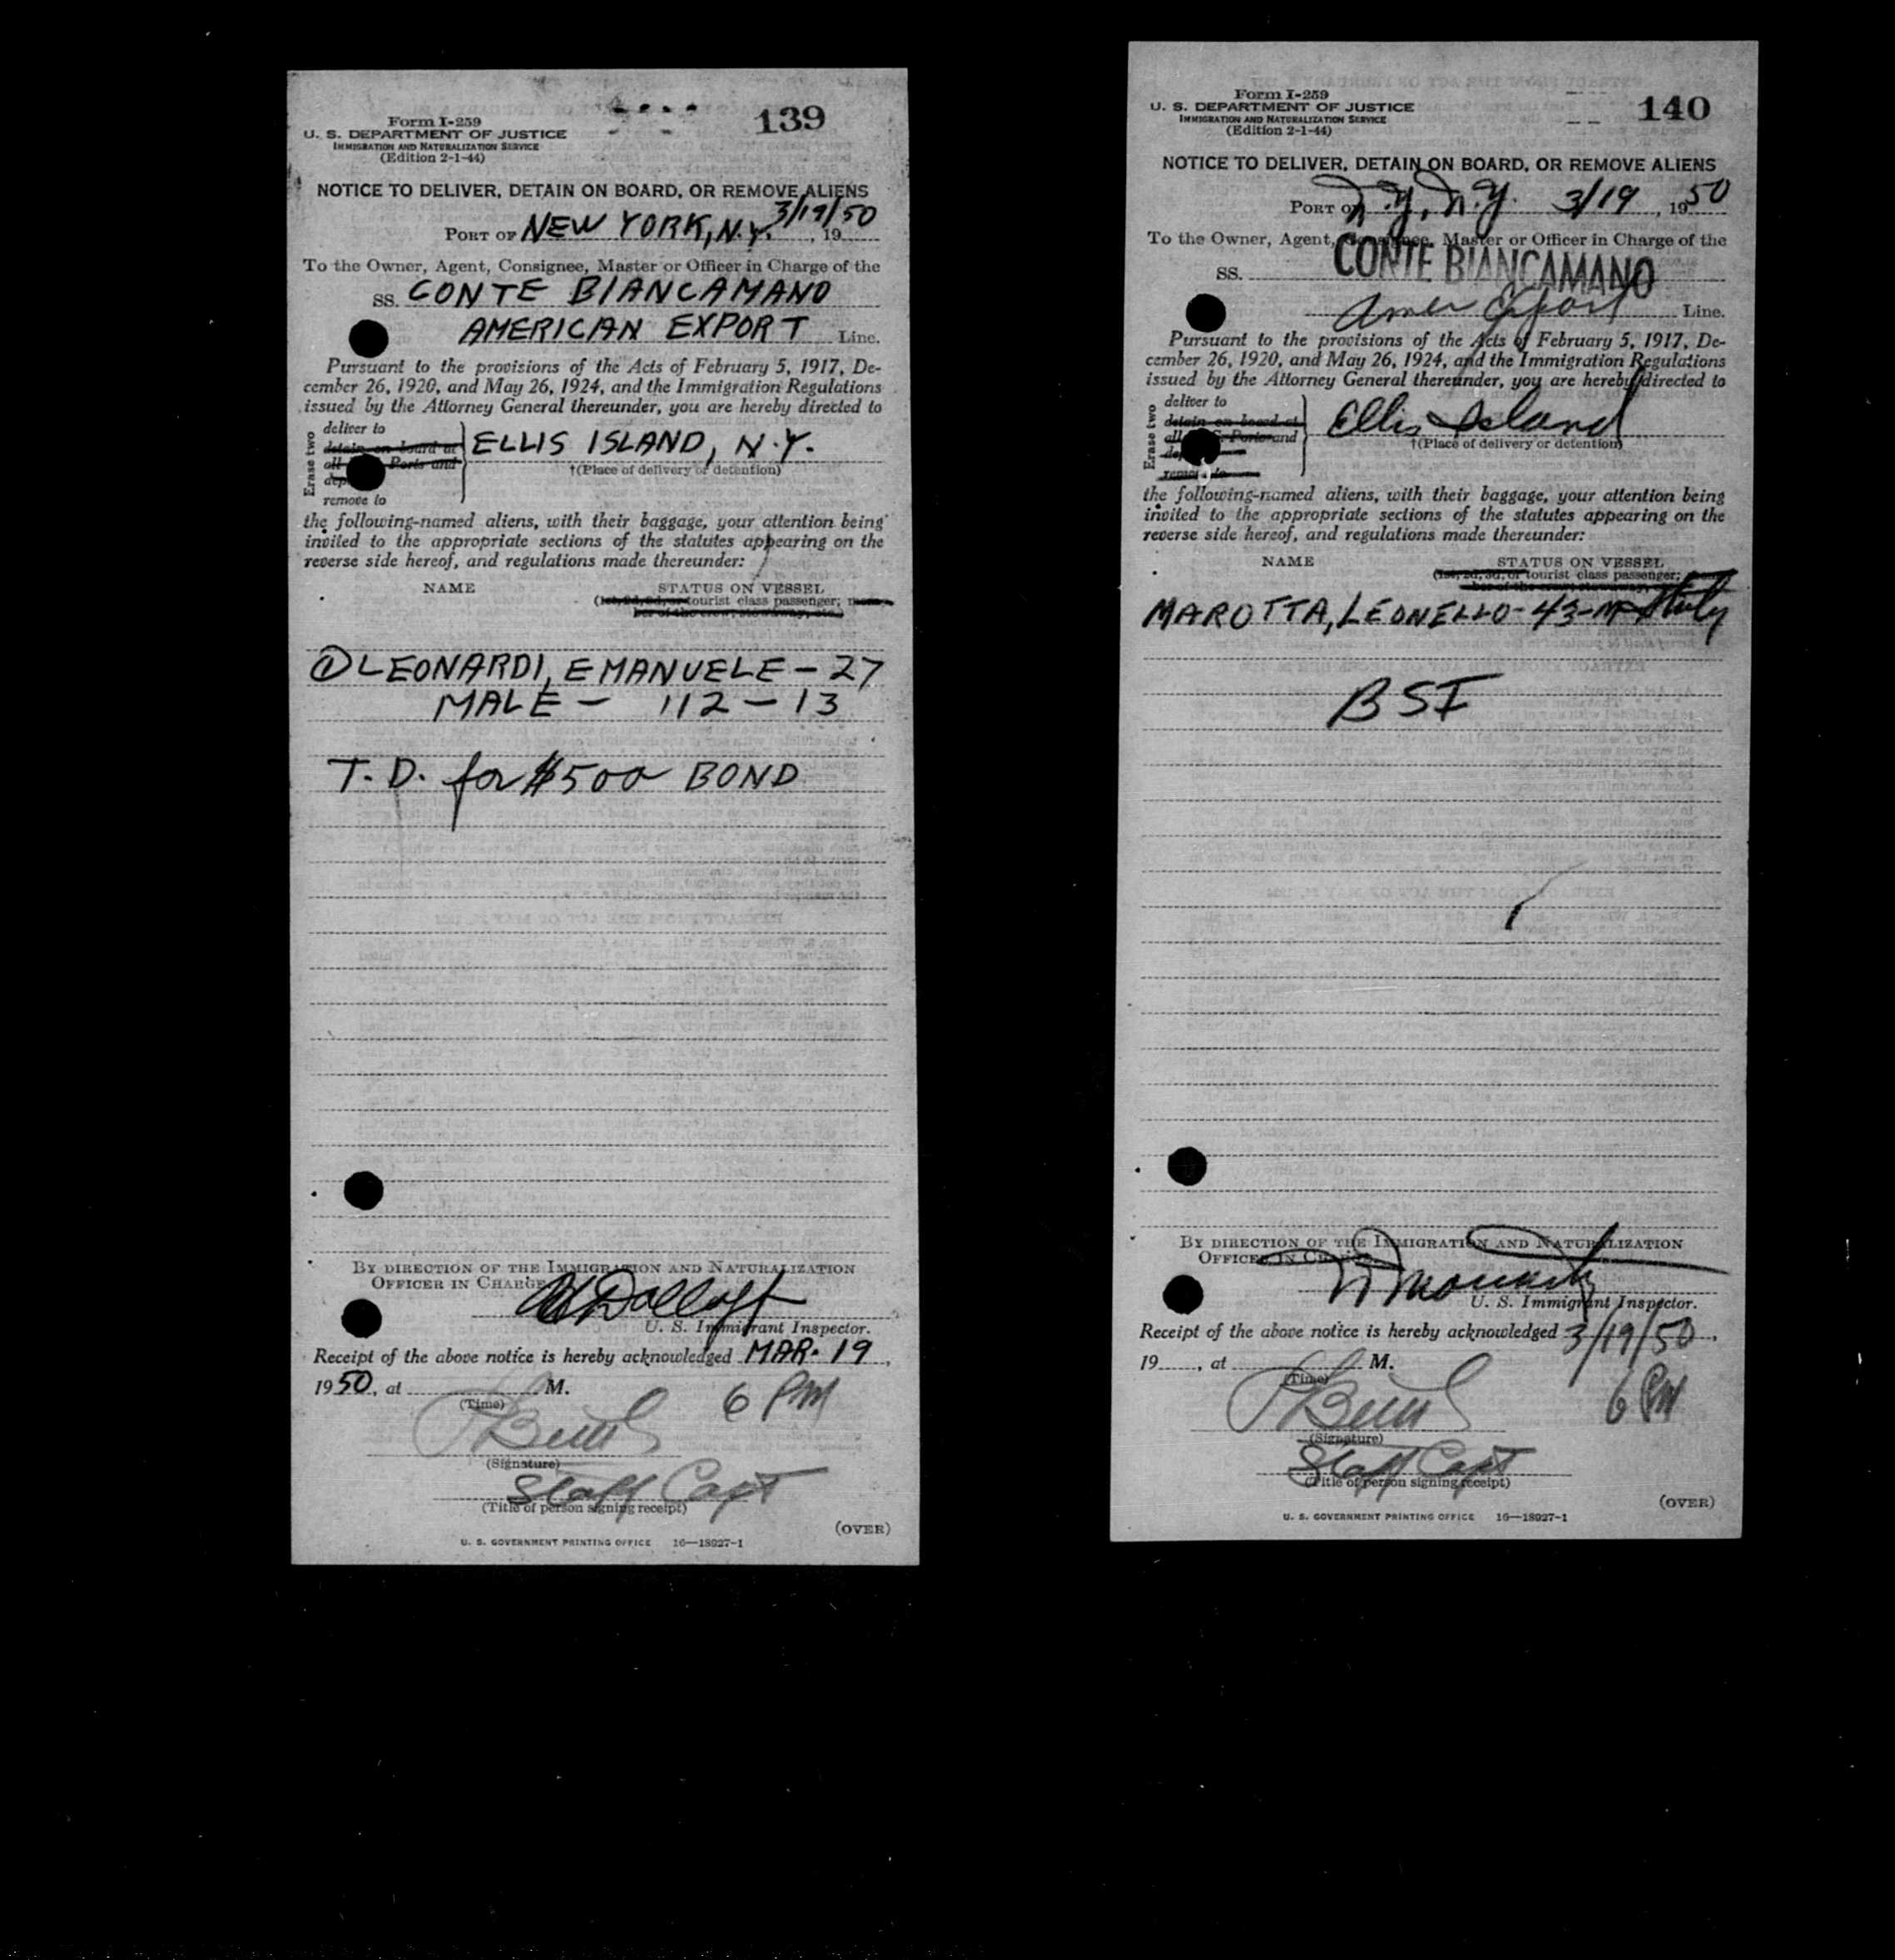 139
Form I-259
U. S. DEPARTMENT OF JUSTICE
IMMIGRATION AND NATURALIZATION SERVICE
(Edition 2-1-44)
NOTICE TO DELIVER, DETAIN ON BOARD, OR REMOVE ALIENS
3/19/50
PORT OF NEW YORK, N.Y., 19
To the Owner, Agent, Consignee, Master or Officer in Charge of the
SS. CONTE BIANCAMANO
AMERICAN EXPORT Line.
Pursuant to the provisions of the Acts of February 5, 1917, De-
cember 26, 1920, and May 26, 1924, and the Immigration Regulations
issued by the Attorney General thereunder, you are hereby directed to
Erase two
deliver to
detain on board at
all Ports and
dep
remove to
ELLIS ISLAND, N.Y.
†(Place of delivery or detention)
the following-named aliens, with their baggage, your attention being
invited to the appropriate sections of the statutes appearing on the
reverse side hereof, and regulations made thereunder:
NAME STATUS ON VESSEL
(1st, 2d, 3d, or tourist class passenger; mem-
ber of the crew, stowaway, etc.)
① LEONARDI, EMANUELE - 27
MALE - 112 - 13
T.D. for $500 BOND
BY DIRECTION OF THE IMMIGRATION AND NATURALIZATION
OFFICER IN CHARGE
U. S. Immigrant Inspector.
Receipt of the above notice is hereby acknowledged MAR. 19,
1950, at M. 6 PM
(Time)
(Signature)
Staff Capt
(Title of person signing receipt)
(OVER)
U. S. GOVERNMENT PRINTING OFFICE 16—18927-1
140
Form I-259
U. S. DEPARTMENT OF JUSTICE
IMMIGRATION AND NATURALIZATION SERVICE
(Edition 2-1-44)
NOTICE TO DELIVER, DETAIN ON BOARD, OR REMOVE ALIENS
PORT OF N.Y., N.Y. 3/19, 1950
To the Owner, Agent, Consignee, Master or Officer in Charge of the
SS. CONTE BIANCAMANO
Amer Export Line.
Pursuant to the provisions of the Acts of February 5, 1917, De-
cember 26, 1920, and May 26, 1924, and the Immigration Regulations
issued by the Attorney General thereunder, you are hereby directed to
Erase two
deliver to
detain on board at
all Ports and
dep
remove to
Ellis Island
†(Place of delivery or detention)
the following-named aliens, with their baggage, your attention being
invited to the appropriate sections of the statutes appearing on the
reverse side hereof, and regulations made thereunder:
NAME STATUS ON VESSEL
(1st, 2d, 3d, or tourist class passenger; mem-
ber of the crew, stowaway,
MAROTTA, LEONELLO - 43 - M - Italy
BSI
BY DIRECTION OF THE IMMIGRATION AND NATURALIZATION
OFFICER IN CHARGE
U. S. Immigrant Inspector.
Receipt of the above notice is hereby acknowledged 3/19/50,
19, at M. 6 PM
(Time)
(Signature)
Staff Capt
(Title of person signing receipt)
(OVER)
U. S. GOVERNMENT PRINTING OFFICE 16—18927-1